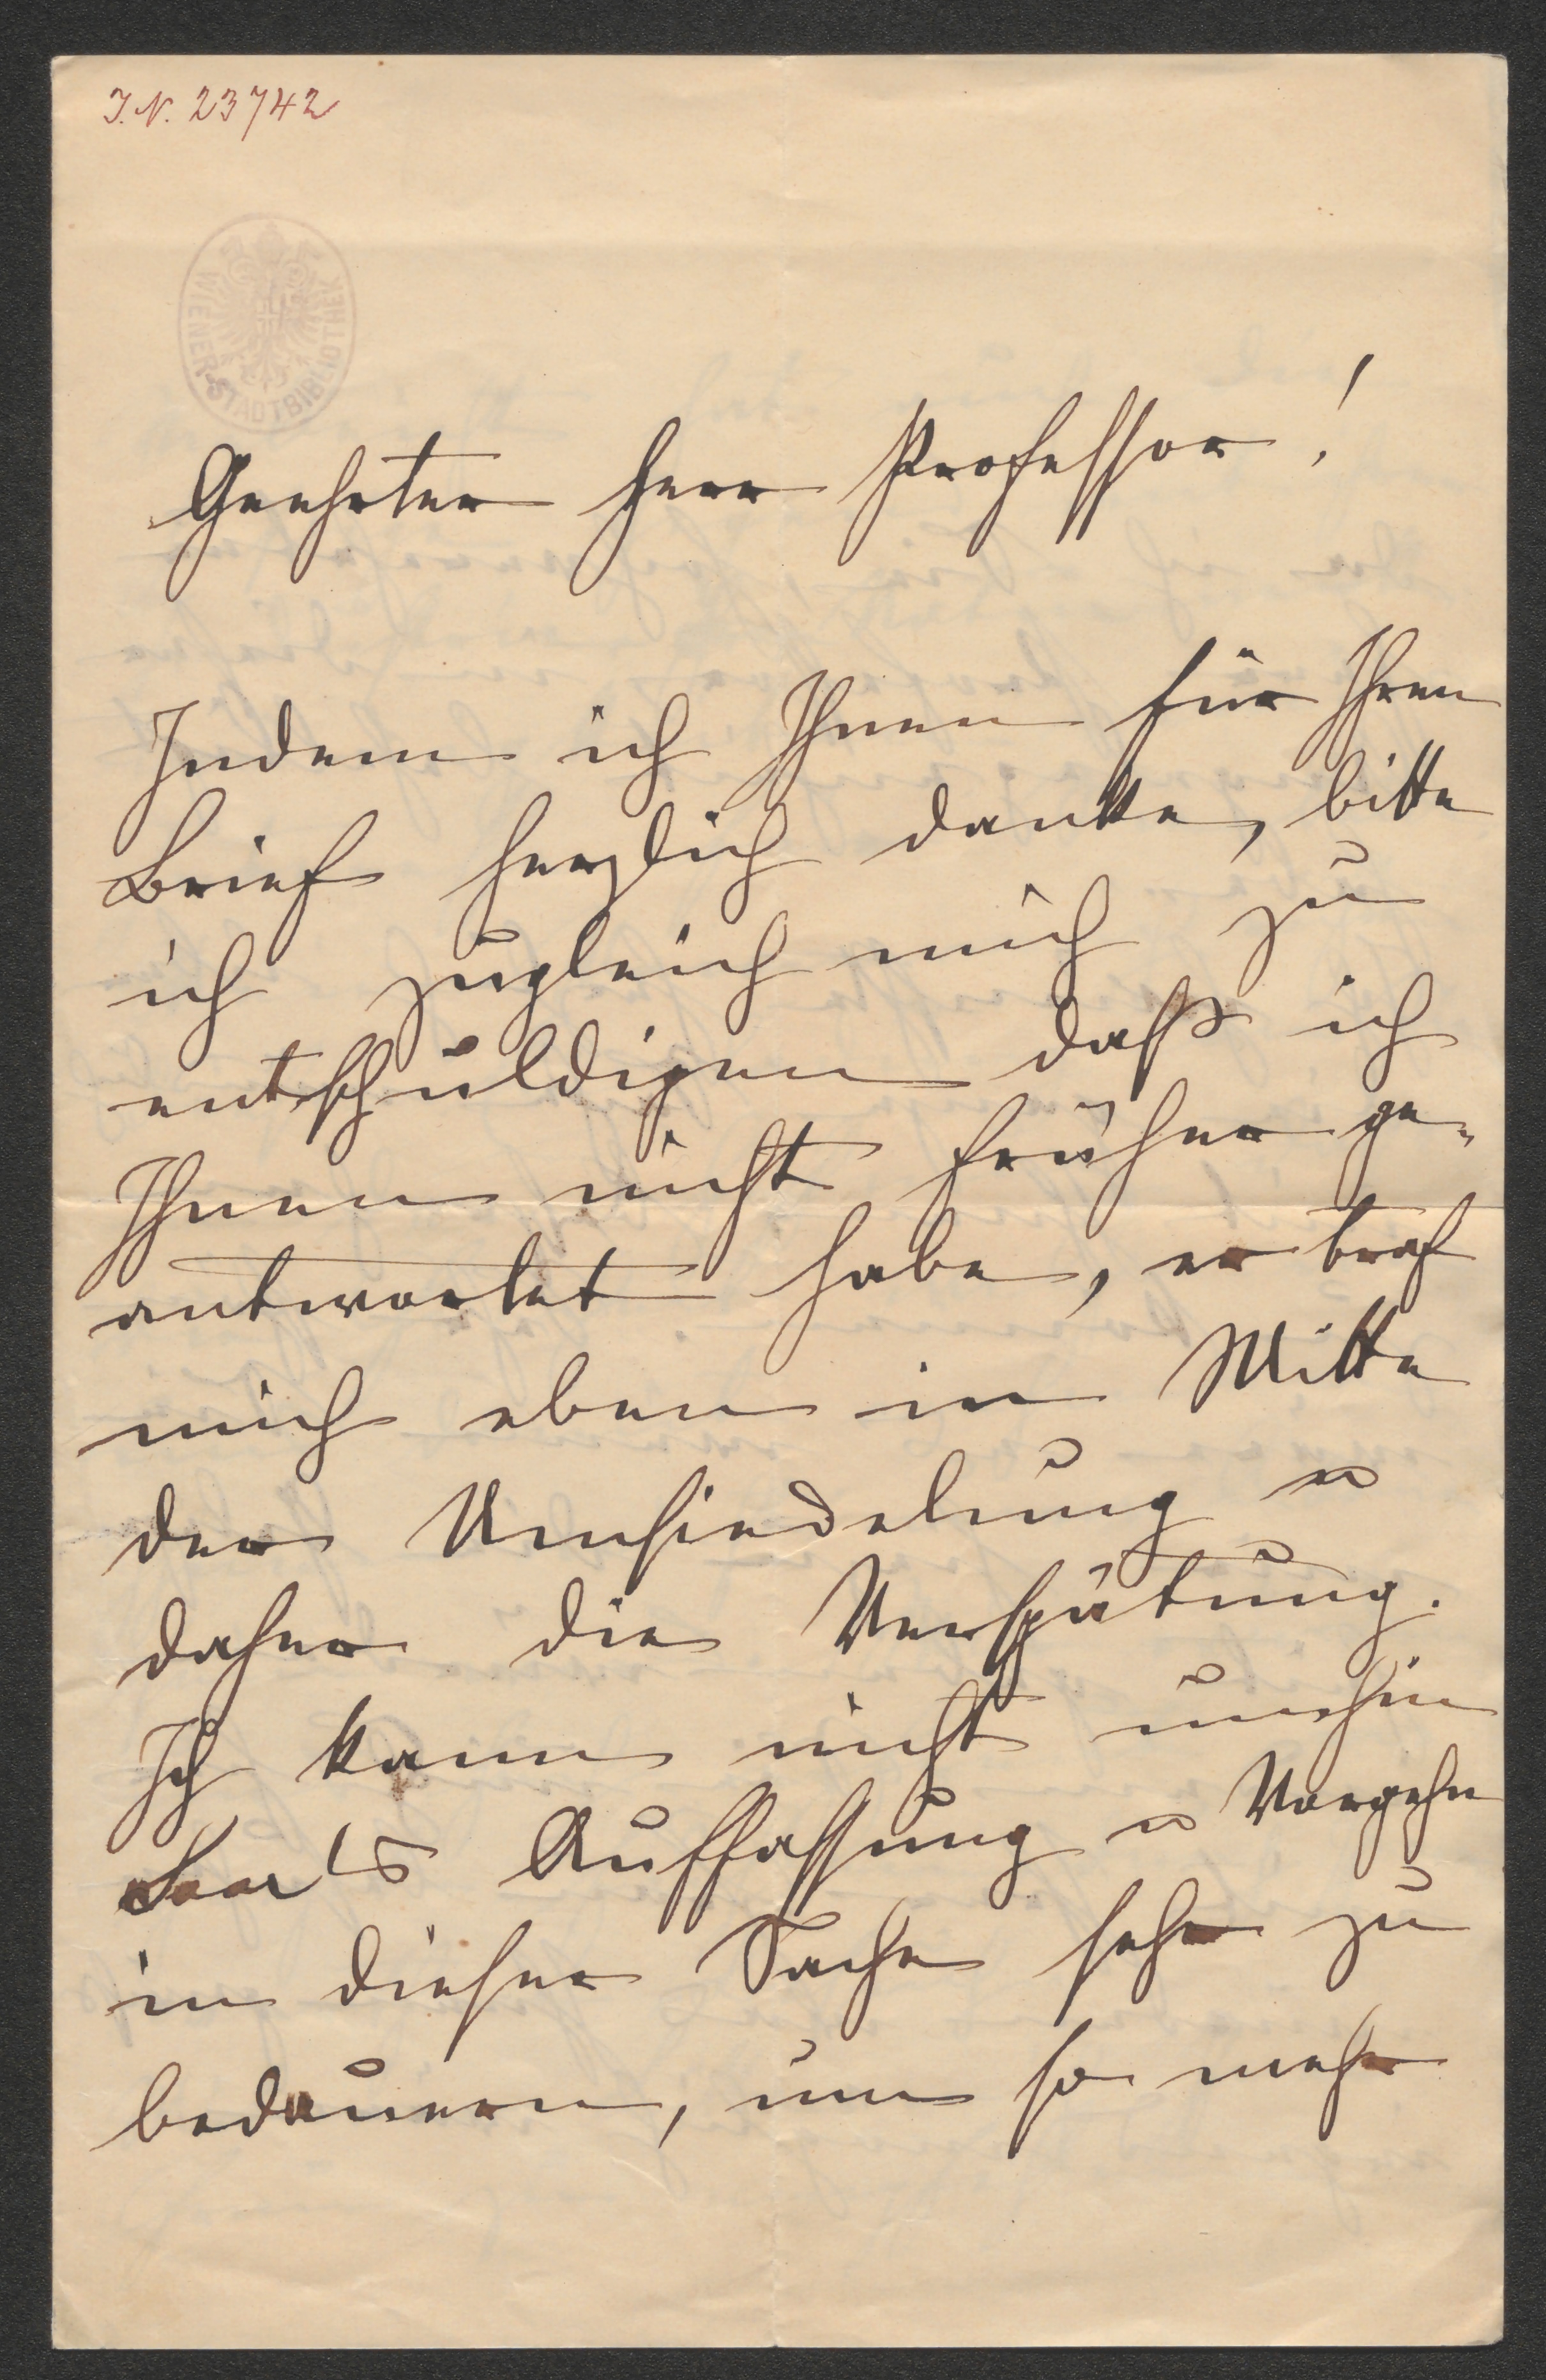 I. N. 23742
WIENER STADTBIBLIOTHEK
Geehrter Herr Professor!
Indem ich Ihnen für Ihren
Brief herzlich danke, bitte
ich zugleich mich zu
entschuldigen daß ich
Ihnen nicht früher ge-
antwortet habe, er traf
mich eben in Mitte
der Umsiedelung u
daher die Verspätung.
Ich kann nicht umhin
Saar's Auffassung u Vorgehn
in dieser Sache sehr zu
bedauern, um so mehr